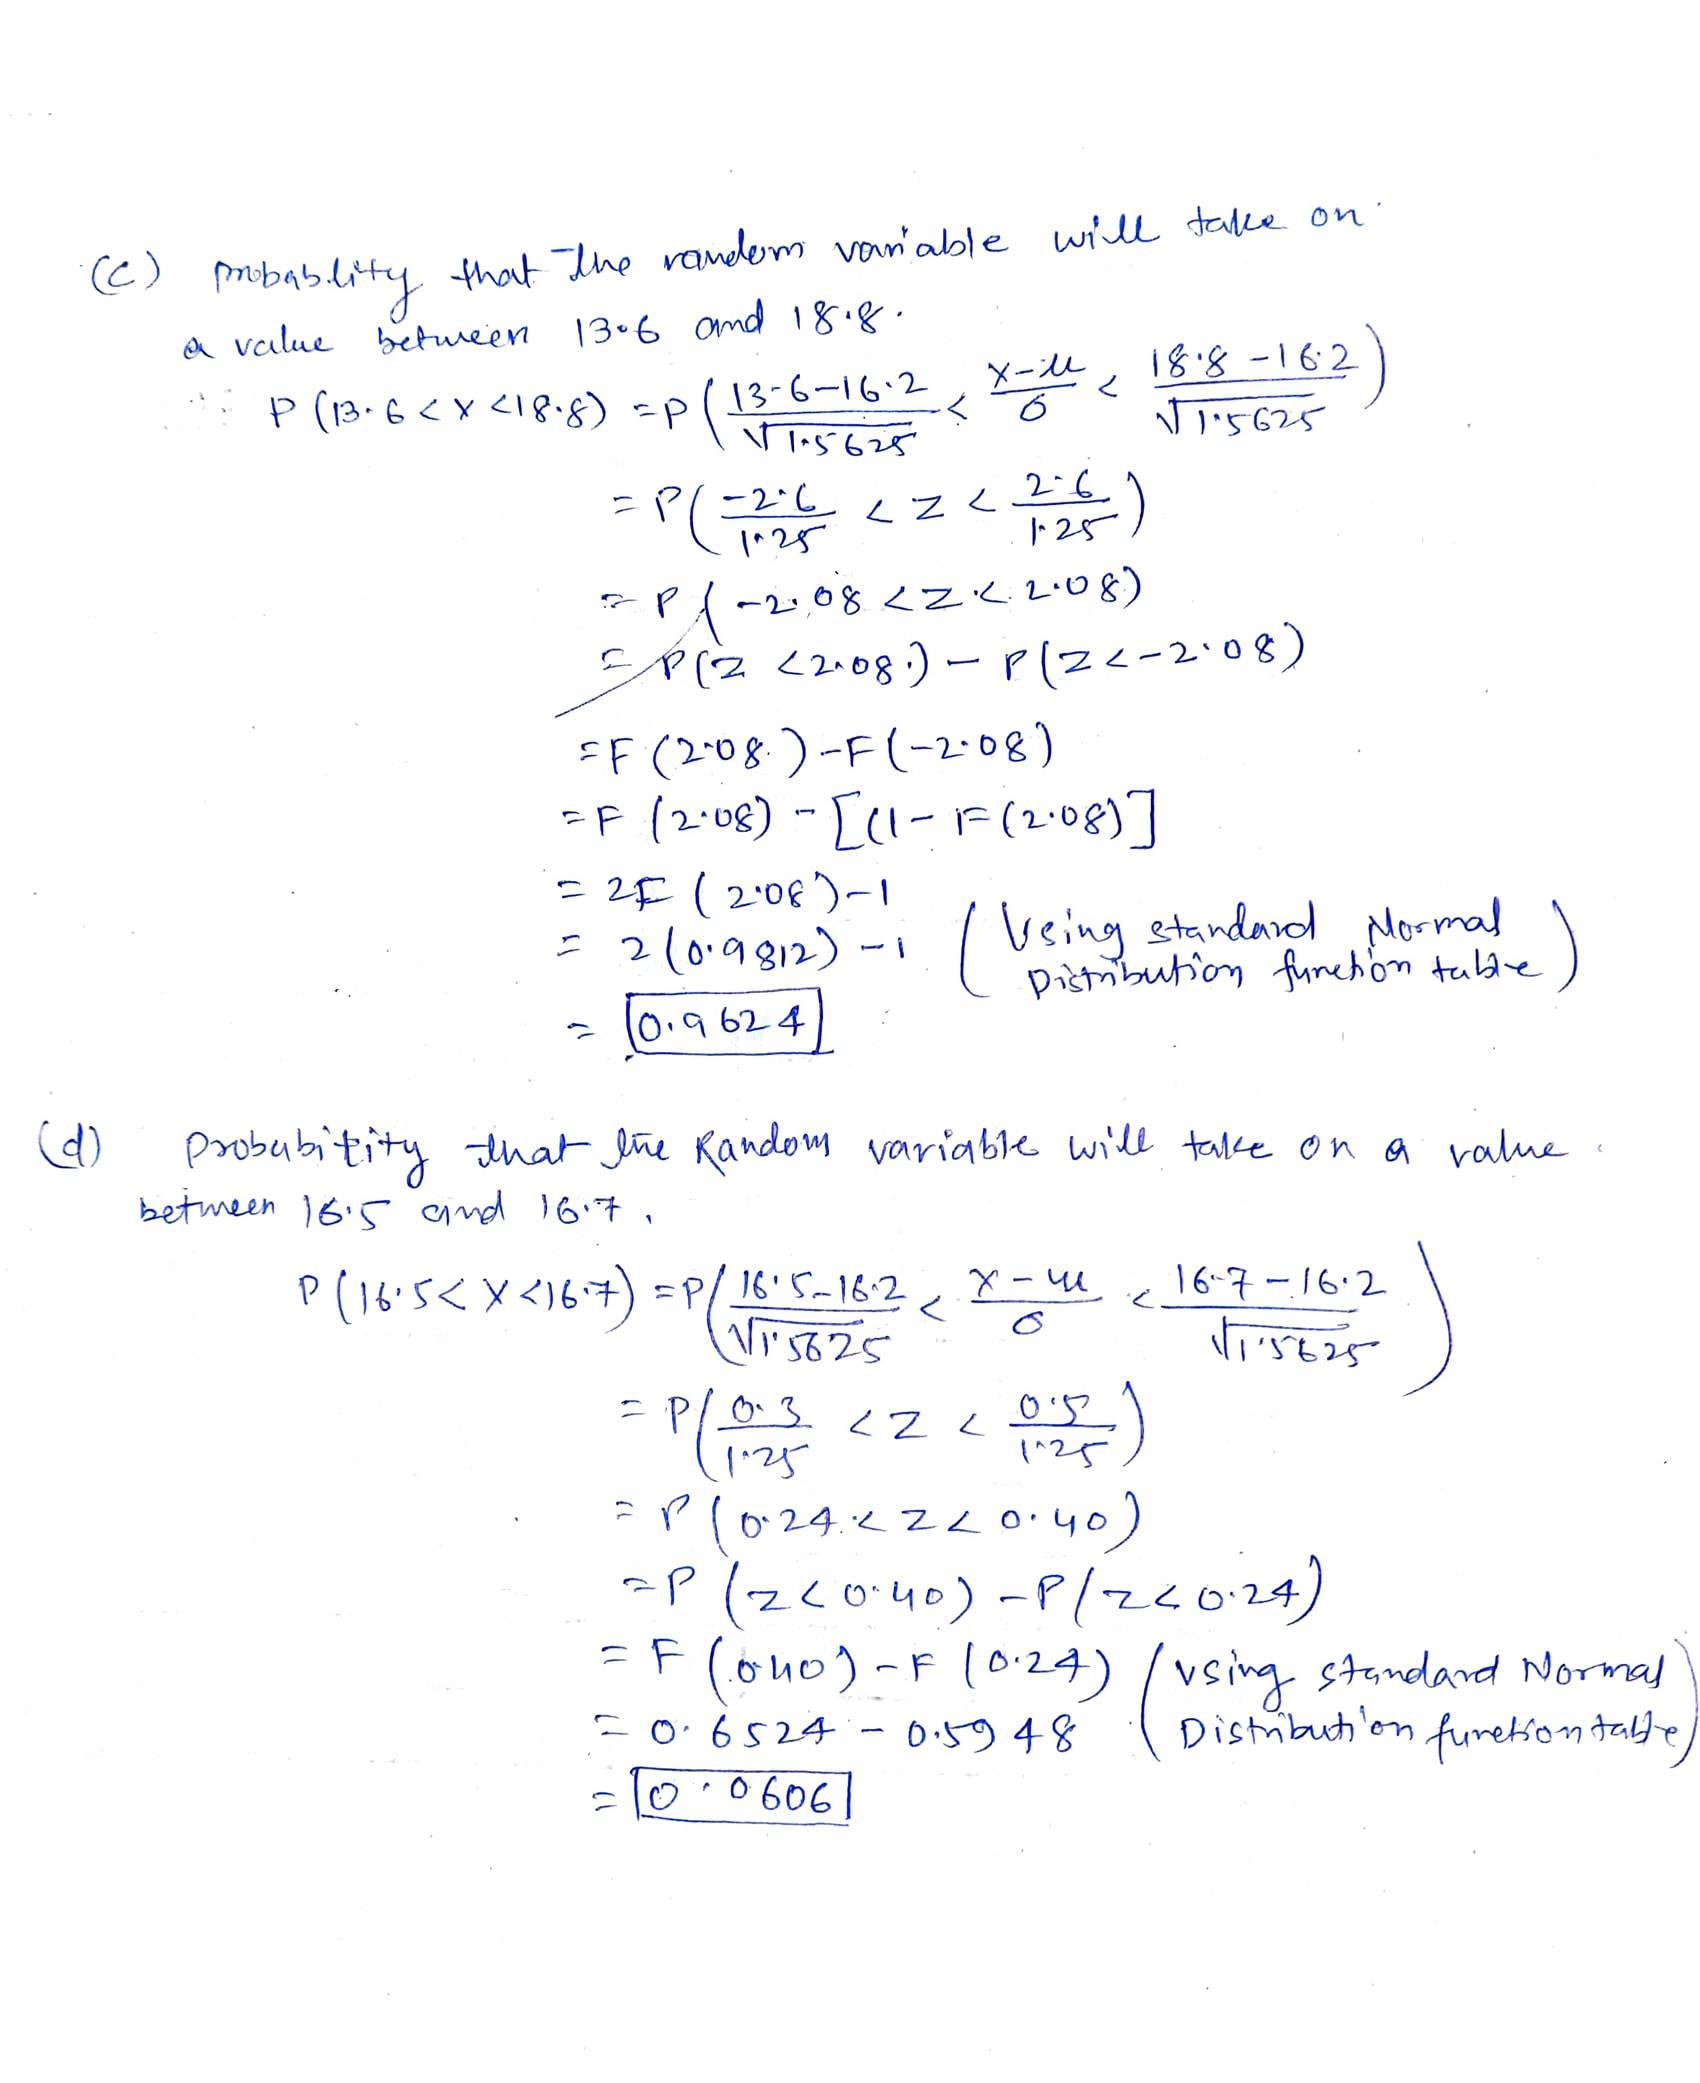 (c) probability that the random variable will take on
a value between 13.6 and 18.8.
P (13.6 < X < 18.8) = P ( (13.6 - 16.2)/√1.5625 < (X - μ)/σ < (18.8 - 16.2)/√1.5625 )
= P( -2.6/1.25 < Z < 2.6/1.25 )
= P( -2.08 < Z < 2.08)
= P(Z < 2.08) - P(Z < -2.08)
= F (2.08) - F(-2.08)
= F (2.08) - [(1 - F(2.08)]
= 2F (2.08) - 1
= 2(0.9812) - 1 (Using standard Normal Distribution function table)
= 0.9624
(d) Probability that the Random variable will take on a value
between 16.5 and 16.7.
P (16.5 < X < 16.7) = P( (16.5 - 16.2)/√1.5625 < (X - μ)/σ < (16.7 - 16.2)/√1.5625 )
= P( 0.3/1.25 < Z < 0.5/1.25 )
= P (0.24 < Z < 0.40)
= P (Z < 0.40) - P(Z < 0.24)
= F (0.40) - F (0.24) (Using standard Normal
= 0.6524 - 0.5948 Distribution function table)
= 0.0606